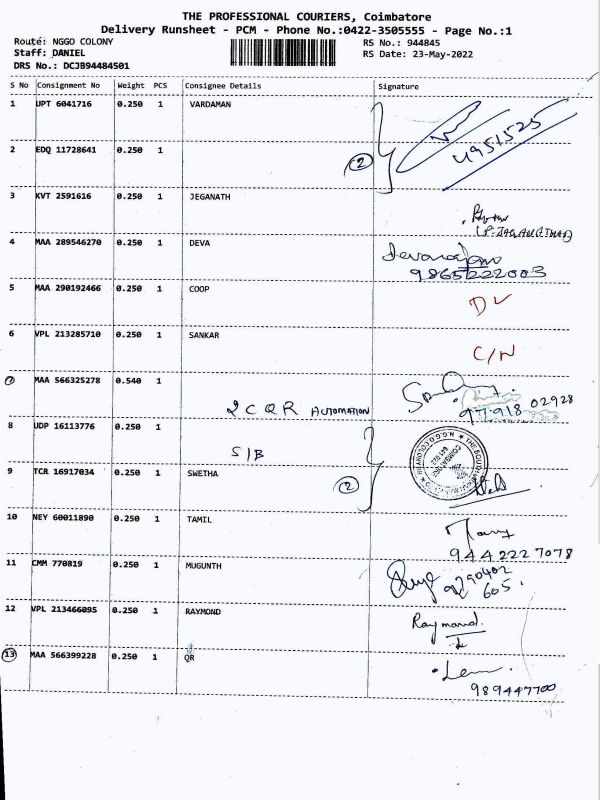 THE PROFESSIONAL COURIERS, Coimbatore
Delivery Runsheet - PCM - Phone No.:0422-3505555 - Page No.:1
Route: NGGO COLONY RS No.: 944845
Staff: DANIEL RS Date: 23-May-2022
DRS No.: DCJB94484501
S No Consignment No Weight PCS Consignee Details Signature
1 UPT 6041716 0.250 1 VARDAMAN
4951525
2 EDQ 11728641 0.250 1 2
3 KVT 2591616 0.250 1 JEGANATH
4 MAA 289546270 0.250 1 DEVA
Devarajan
9865222003
5 MAA 290192466 0.250 1 COOP
DL
6 VPL 213285710 0.250 1 SANKAR
C/N
7 MAA 566325278 0.540 1
2 C Q R AUTOMATION 97918 02928
8 UDP 16113776 0.250 1
S/B
9 TCR 16917034 0.250 1 SWETHA 2
10 NEY 60011890 0.250 1 TAMIL
9442227078
11 CMM 770819 0.250 1 MUGUNTH
9790402
605
12 VPL 213466095 0.250 1 RAYMOND
Raymond
13 MAA 566399228 0.250 1 QR
989447700